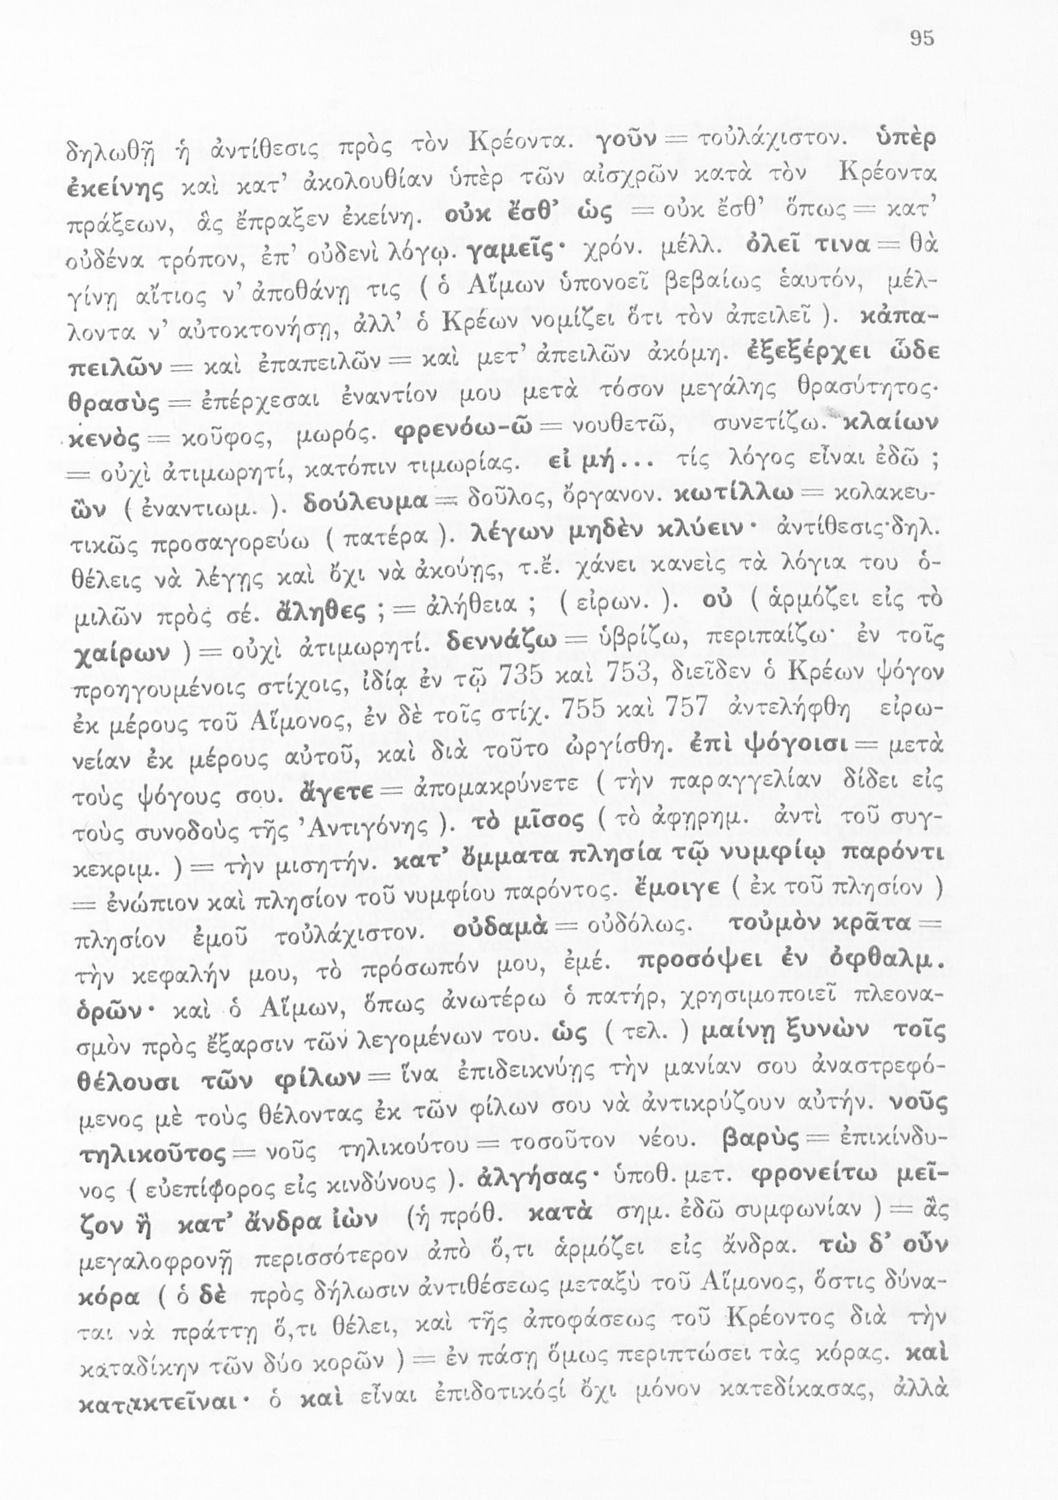 95
δηλωθῇ ἡ ἀντίθεσις πρὸς τὸν Κρέοντα. γοῦν = τοὐλάχιστον. ὑπὲρ
ἐκείνης καὶ κατ’ ἀκολουθίαν ὑπὲρ τῶν αἰσχρῶν κατὰ τὸν Κρέοντα
πράξεων, ἃς ἔπραξεν ἐκείνη. οὐκ ἔσθ’ ὡς = οὐκ ἔσθ’ ὅπως = κατ’
οὐδένα τρόπον, ἐπ’ οὐδενὶ λόγῳ. γαμεῖς· χρόν. μέλλ. ὀλεῖ τινα = θὰ
γίνῃ αἴτιος ν’ ἀποθάνῃ τις ( ὁ Αἵμων ὑπονοεῖ βεβαίως ἑαυτόν, μέλ-
λοντα ν’ αὐτοκτονήσῃ, ἀλλ’ ὁ Κρέων νομίζει ὅτι τὸν ἀπειλεῖ ). κἀπα-
πειλῶν = καὶ ἐπαπειλῶν = καὶ μετ’ ἀπειλῶν ἀκόμη. ἐξεξέρχει ὧδε
θρασὺς = ἐπέρχεσαι ἐναντίον μου μετὰ τόσον μεγάλης θρασύτητος·
κενὸς = κοῦφος, μωρός. φρενόω-ῶ = νουθετῶ, συνετίζω. κλαίων
= οὐχὶ ἀτιμωρητί, κατόπιν τιμωρίας. εἰ μή... τίς λόγος εἶναι ἐδῶ ;
ὢν ( ἐναντιωμ. ). δούλευμα = δοῦλος, ὄργανον. κωτίλλω = κολακευ-
τικῶς προσαγορεύω ( πατέρα ). λέγων μηδὲν κλύειν· ἀντίθεσις·δηλ.
θέλεις νὰ λέγῃς καὶ ὄχι νὰ ἀκούῃς, τ.ἔ. χάνει κανεὶς τὰ λόγια του ὁ-
μιλῶν πρὸς σέ. ἄληθες ; = ἀλήθεια ; ( εἰρων. ). οὐ ( ἁρμόζει εἰς τὸ
χαίρων ) = οὐχὶ ἀτιμωρητί. δεννάζω = ὑβρίζω, περιπαίζω· ἐν τοῖς
προηγουμένοις στίχοις, ἰδίᾳ ἐν τῷ 735 καὶ 753, διεῖδεν ὁ Κρέων ψόγον
ἐκ μέρους τοῦ Αἵμονος, ἐν δὲ τοῖς στίχ. 755 καὶ 757 ἀντελήφθη εἰρω-
νείαν ἐκ μέρους αὐτοῦ, καὶ διὰ τοῦτο ὠργίσθη. ἐπὶ ψόγοισι = μετὰ
τοὺς ψόγους σου. ἄγετε = ἀπομακρύνετε ( τὴν παραγγελίαν δίδει εἰς
τοὺς συνοδοὺς τῆς ’Αντιγόνης ). τὸ μῖσος ( τὸ ἀφῃρημ. ἀντὶ τοῦ συγ-
κεκριμ. ) = τὴν μισητήν. κατ’ ὄμματα πλησία τῷ νυμφίῳ παρόντι
= ἐνώπιον καὶ πλησίον τοῦ νυμφίου παρόντος. ἔμοιγε ( ἐκ τοῦ πλησίον )
πλησίον ἐμοῦ τοὐλάχιστον. οὐδαμὰ = οὐδόλως. τοὐμὸν κρᾶτα =
τὴν κεφαλήν μου, τὸ πρόσωπόν μου, ἐμέ. προσόψει ἐν ὀφθαλμ.
ὁρῶν· καὶ ὁ Αἵμων, ὅπως ἀνωτέρω ὁ πατήρ, χρησιμοποιεῖ πλεονα-
σμὸν πρὸς ἔξαρσιν τῶν λεγομένων του. ὡς ( τελ. ) μαίνῃ ξυνὼν τοῖς
θέλουσι τῶν φίλων = ἵνα ἐπιδεικνύῃς τὴν μανίαν σου ἀναστρεφό-
μενος μὲ τοὺς θέλοντας ἐκ τῶν φίλων σου νὰ ἀντικρύζουν αὐτήν. νοῦς
τηλικοῦτος = νοῦς τηλικούτου = τοσοῦτον νέου. βαρὺς = ἐπικίνδυ-
νος ( εὐεπίφορος εἰς κινδύνους ). ἀλγήσας· ὑποθ. μετ. φρονείτω μεῖ-
ζον ἢ κατ’ ἄνδρα ἰὼν (ἡ πρόθ. κατὰ σημ. ἐδῶ συμφωνίαν ) = ἂς
μεγαλοφρονῇ περισσότερον ἀπὸ ὅ,τι ἁρμόζει εἰς ἄνδρα. τὼ δ’ οὖν
κόρα ( ὁ δὲ πρὸς δήλωσιν ἀντιθέσεως μεταξὺ τοῦ Αἵμονος, ὅστις δύνα-
ται νὰ πράττῃ ὅ,τι θέλει, καὶ τῆς ἀποφάσεως τοῦ Κρέοντος διὰ τὴν
καταδίκην τῶν δύο κορῶν ) = ἐν πάσῃ ὅμως περιπτώσει τὰς κόρας. καὶ
κατακτεῖναι· ὁ καὶ εἶναι ἐπιδοτικόςί ὄχι μόνον κατεδίκασας, ἀλλὰ